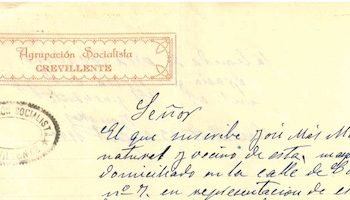 Agrupación Socialista
CREVILLENTE
SOCIALIST
Señor
El que suscribe José Más M
natural y vecino de esta, may
domiciliado en la calle de
nº 7, en representación de es